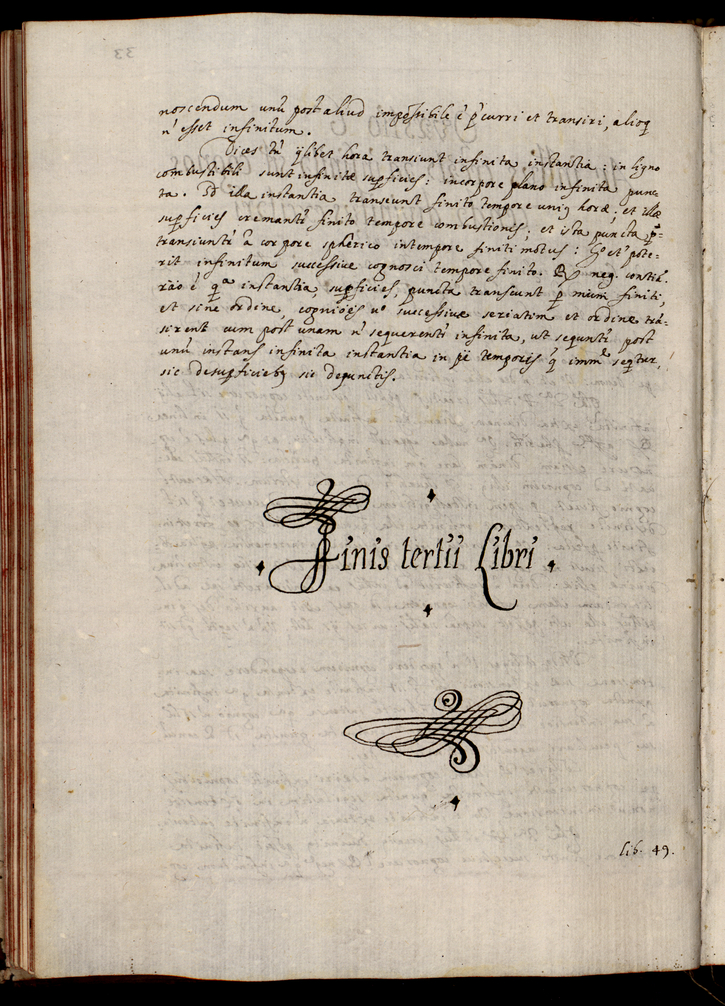 noscendum unũ post aliud impossibile ẽ p̃curri et transiri, alioq
n̓ esset infinitum.
Dices tñ q̃libet hora transiunt infinita instantia: in ligno
combustibili sunt infinitæ sup̃ficies: in corpore plano infinita punc
ta. Sꝫ illa instantia transeunt finito tempore uniꝯ horæ, et illæ
sup̃ficies cremantr̃ finito tempore combustionis; et ista puncta
transiuntr̃ à corpore spherico in tempore finiti motus: Ergo et pote-
rit infinitum successive cognosci tempore finito. neg. contiã.
rão ẽ qᵃ instantia, sup̃ficies, puncta transeunt p̱ finiti,
et sine ordine, cogniões uº successive seriatim et ordine trã-
sirent cum post unam n̓ sequerentr̃ infinita, ut sequntr̃ post
unũ instans infinita instantia in temporis q̃ immᵉ seq̃tur,
sic de sup̃ficiebꝯ sic de punctis.
Finis tertii Libri
Lib. 49.